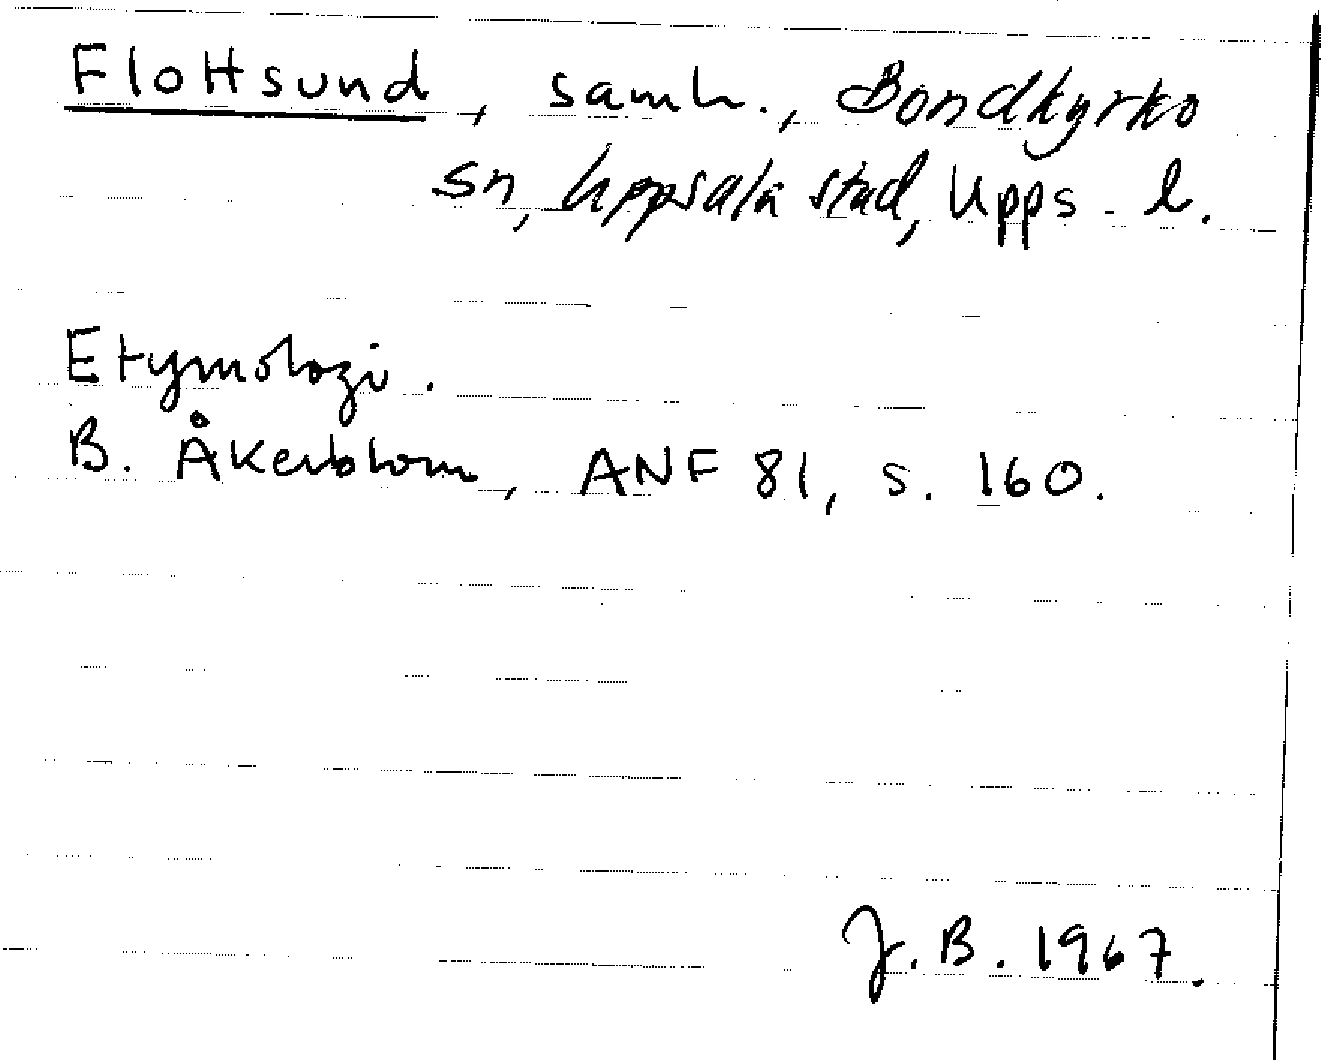 Flottsund, samh., Bondkyrko
sn, Uppsala stad, Upps. l.
Etymologi.
B. Åkerblom, ANF 81, s. 160.
J.B. 1967.